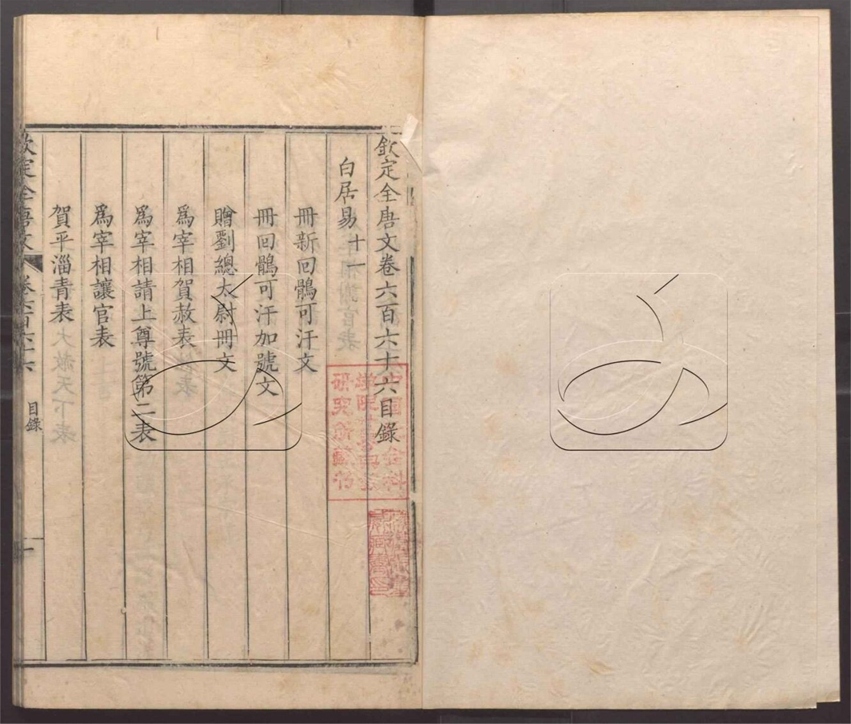 欽定全唐文卷六百六十六目錄
白居易十一
冊新回鶻可汗文
冊回鶻可汗加號文
贈劉總太尉冊文
爲宰相賀赦表
爲宰相請上尊號第二表
爲宰相讓官表
賀平淄青表
欽定全唐文 卷六百六十六 目錄 一